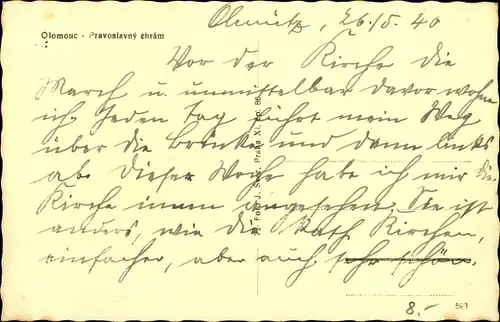 Olmütz, 26./5. 40
Olomouc - Pravoslavný chrám
Vor der Kirche die
March u. unmittelbar davor wohne
ich. Jeden Tag führt mein Weg
über die Brücke und dann links
ab. Dieser Woche habe ich mir die
Kirche innen angesehen. Sie ist
anders, wie die Kath. Kirchen,
einfacher, aber auch sehr schön.
Praha XI.
8.-
593